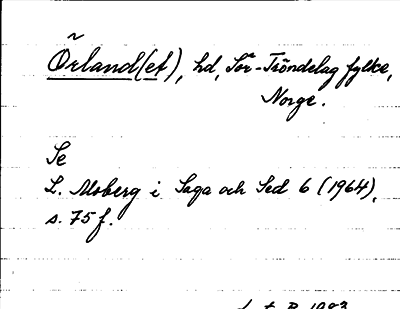 Õrland(et), hd, Sör-Tröndelag fylke,
Norge.
Se
L. Moberg i Saga och Sed 6 (1964),
s. 75 f.